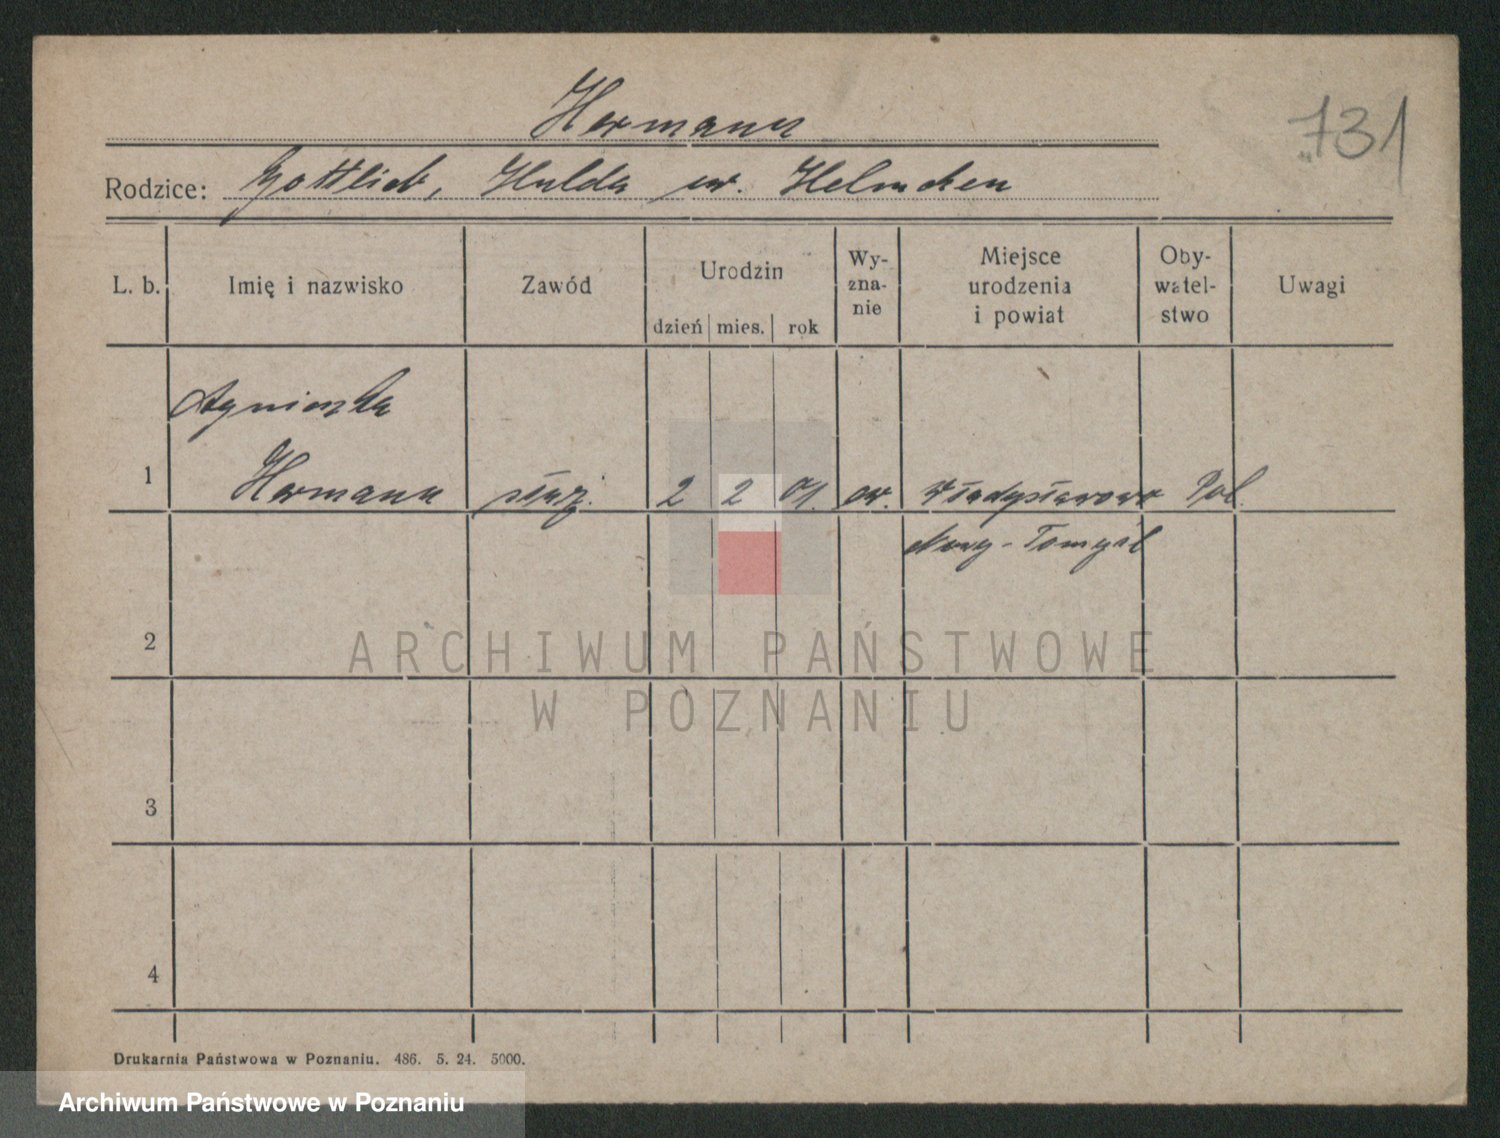 Hermann
731
Rodzice: Gottlieb, Hulda ur. Helmchen
L. b. Imię i nazwisko Zawód Urodzin dzień mies. rok Wy-zna-nie Miejsce urodzenia i powiat Oby-watel-stwo Uwagi
Agnieszka
1 Hermann służ. 2 2 01. ew. Władysławowo Pol.
Nowy-Tomyśl
2
ARCHIWUM PAŃSTWOWE
W POZNANIU
3
4
Drukarnia Państwowa w Poznaniu. 486. 5. 24. 5000.
Archiwum Państwowe w Poznaniu